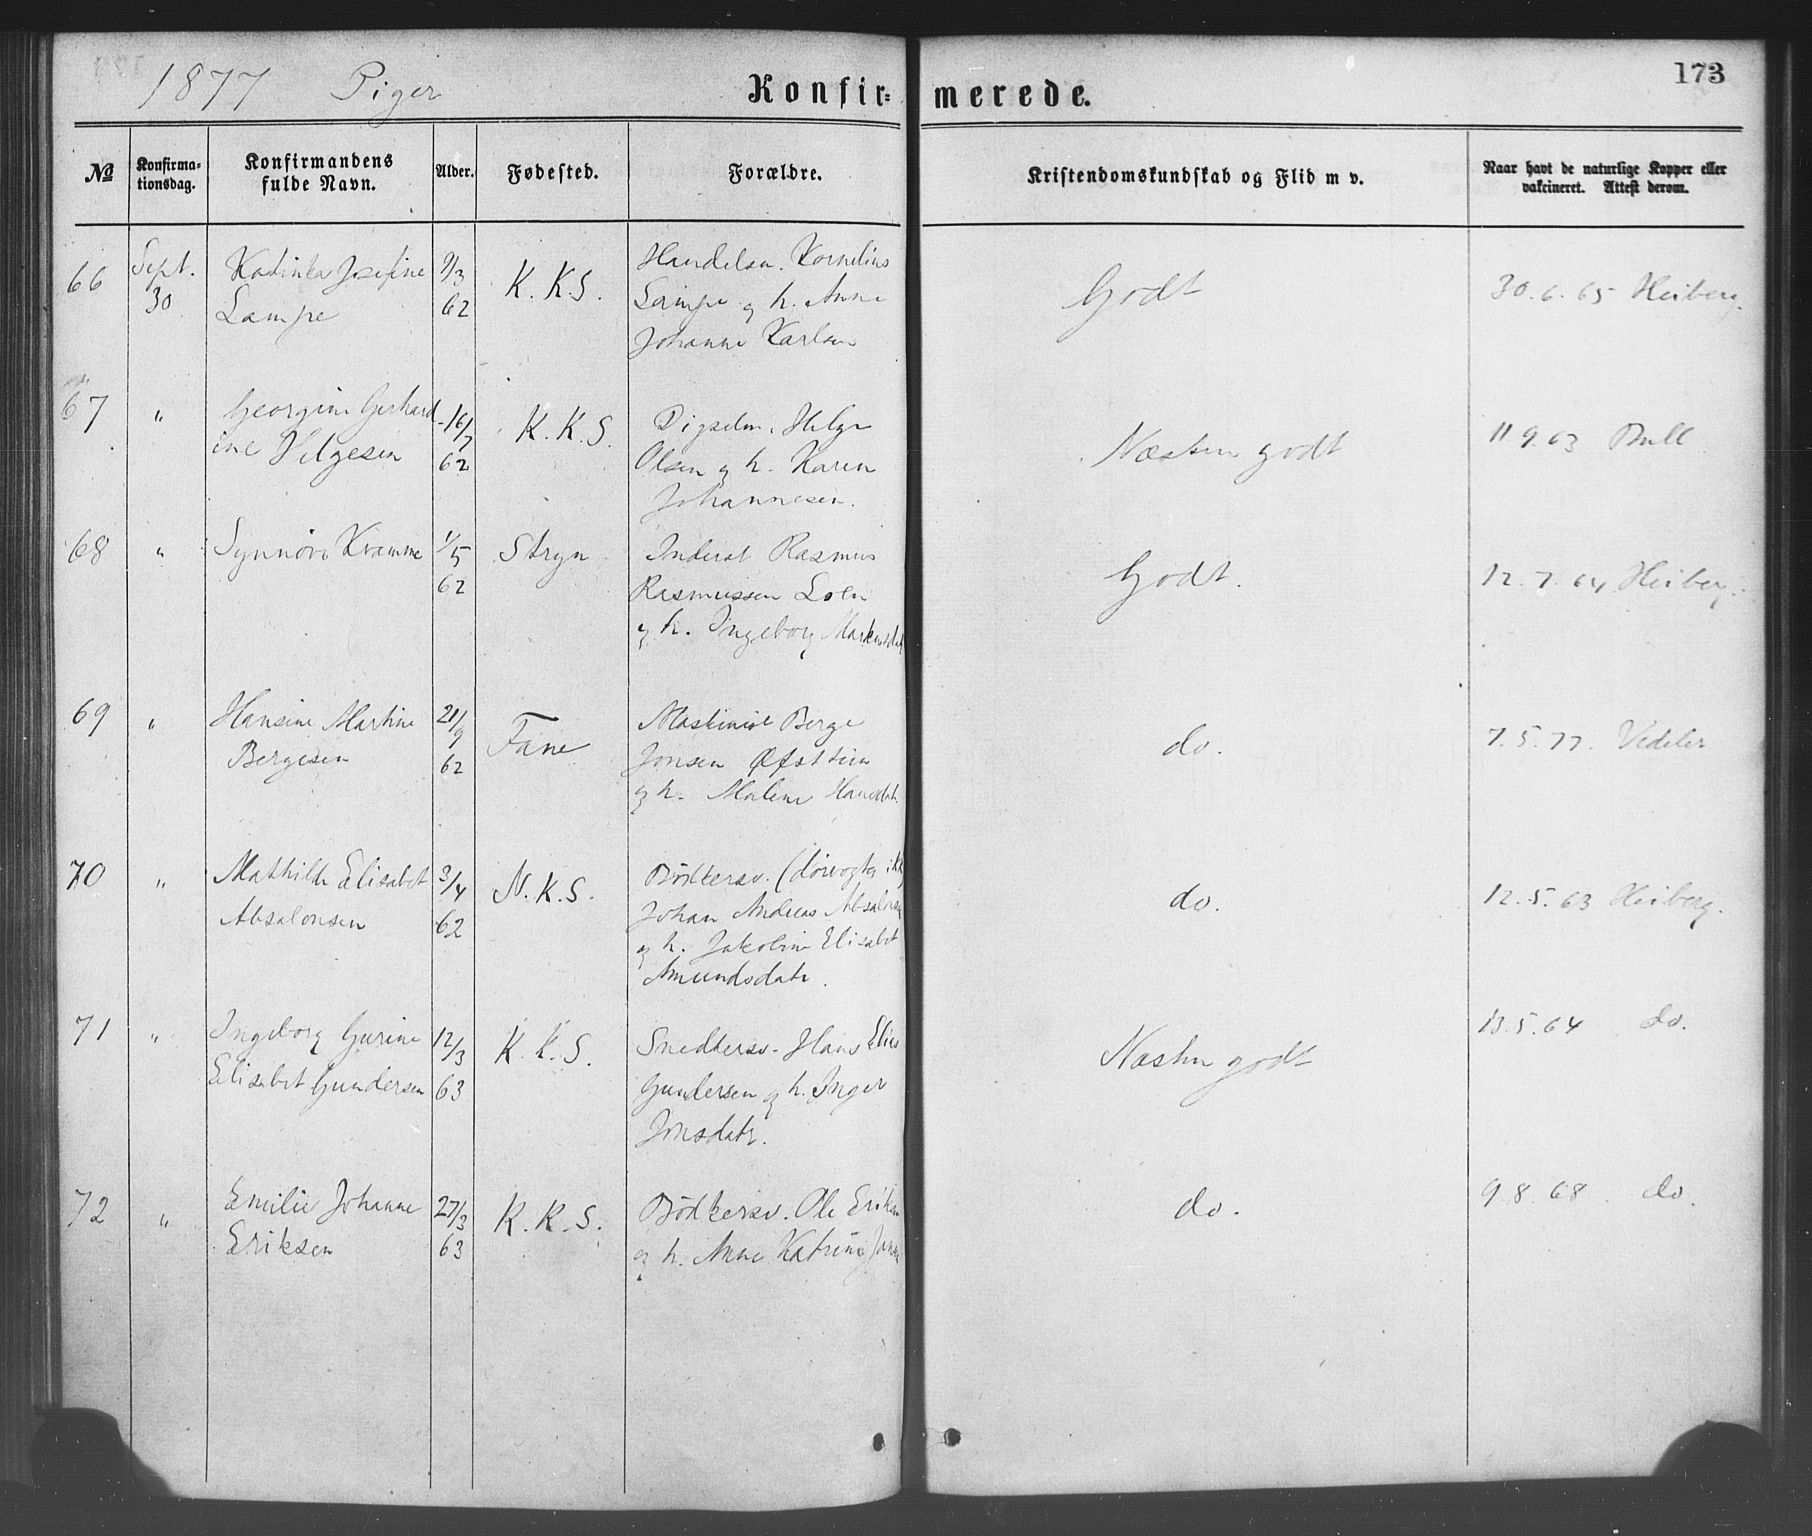 1877 Piger Konfir= merede. 173
№ Konfirma=tionsdag. Konfirmandens fulde Navn. Alder. Fødested. Forældre. Kristendomskundskab og Flid m v. Naar havt de naturlige Kopper eller vakcineret. Attest derom.
66 Sept. Kadinka Josefine 9/3 K. K. S. Handelsm. Kornelius Godt 30.6.65 Heiberg.
30 Lampe 62 Lampe og h. Anne
Johanne Karlsen
67 " Georgine Gerhard- 16/7 K. K. S. Olsen og h. Karen Næsten godt 11 9.63 Bull
ine Helgesen 62 Johannesen.
68 " Synnøve Kvamme 1/5 Stryn Inderst Rasmus Godt. 12.7.64 Heiberg.
62 Rasmussen Loen
og h. Ingeborg Markusdatr
69 " Hansine Martine 21/9 Fane Maskinist Berge do. 7.5.77. Vedeler
Bergesen 62 Jonsen
og h. Malene Hansdatr
70 " Mathilde Elisabet 3/4 N. K. S. Bödkersv. do. 12.5.63 Heiberg.
Absalonsen 62 Johan Andreas Absalonsen
og h. Jakobine Elisabet
Amundsdatr.
71 " Ingeborg Gurine 12/3 K. K. S. Snedkersv. Hans Elias Næsten godt 13.5.64 do.
Elisabet Gundersen 63 Gundersen og h. Inger
Jonsdatr.
72 " Emilie Johanne 27/3 K. K. S. Bödkersv. Ole Eriksen do. 9.8.68. do.
Eriksen 63 og h. Anne Katrine